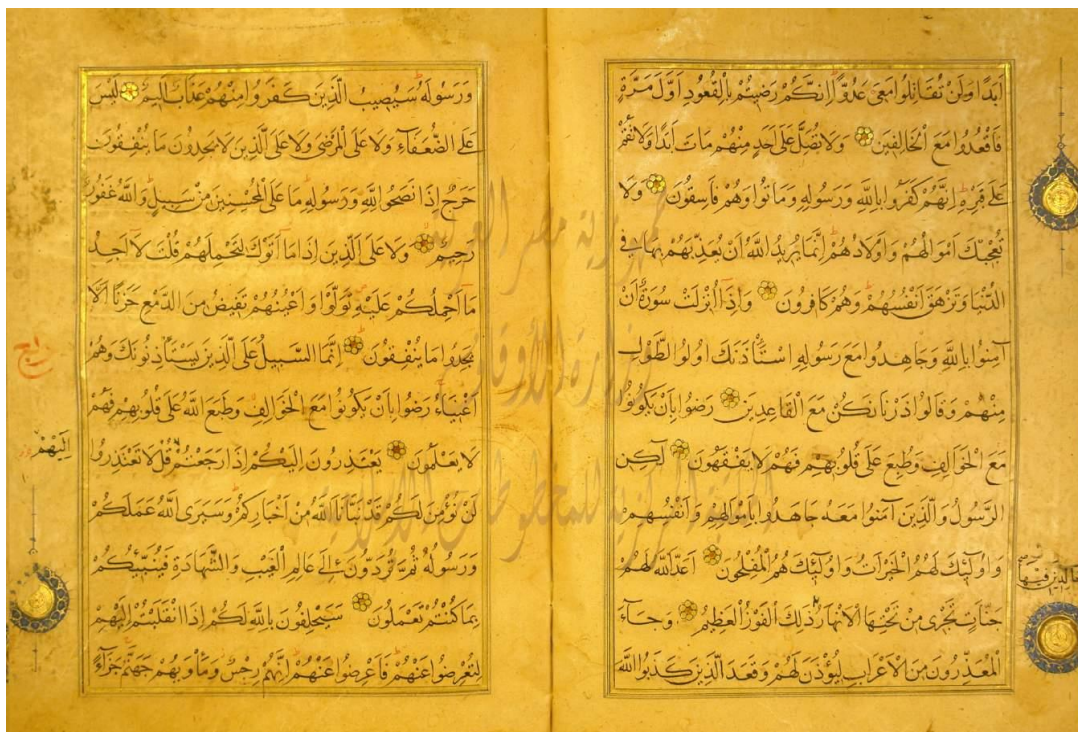 أبدا ولن تقاتلوا معي عدوا إنكم رضيتم بالقعود أول مرة
فاقعدوا مع الخالفين ولا تصل على أحد منهم مات أبدا ولا تقم
على قبره إنهم كفروا بالله ورسوله وماتوا وهم فاسقون ولا
تعجبك أموالهم وأولادهم إنما يريد الله أن يعذبهم بها في
الدنيا وتزهق أنفسهم وهم كافرون وإذا أنزلت سورة أن
آمنوا بالله وجاهدوا مع رسوله استأذنك أولوا الطول
منهم وقالوا ذرنا نكن مع القاعدين رضوا بأن يكونوا
مع الخوالف وطبع على قلوبهم فهم لا يفقهون لكن
الرسول والذين آمنوا معه جاهدوا بأموالهم وأنفسهم
وأولئك لهم الخيرات وأولئك هم المفلحون أعد الله لهم
خالدين فيها
جنات تجري من تحتها الأنهار ذلك الفوز العظيم وجاء
المعذرون من الأعراب ليؤذن لهم وقعد الذين كذبوا الله
ورسوله سيصيب الذين كفروا منهم عذاب أليم ليس
على الضعفاء ولا على المرضى ولا على الذين لا يجدون ما ينفقون
حرج إذا نصحوا لله ورسوله ما على المحسنين من سبيل والله غفور
رحيم ولا على الذين إذا ما أتوك لتحملهم قلت لا أجد
ما أحملكم عليه تولوا وأعينهم تفيض من الدمع حزنا ألا
يجدوا ما ينفقون إنما السبيل على الذين يستأذنونك وهم
أغنياء رضوا بأن يكونوا مع الخوالف وطبع الله على قلوبهم فهم
لا يعلمون يعتذرون إليكم إذا رجعتم قل لا تعتذروا
إليهم
لن نؤمن لكم قد نبأنا الله من أخباركم وسيرى الله عملكم
ورسوله ثم تردون إلى عالم الغيب والشهادة فينبئكم
بما كنتم تعملون سيحلفون بالله لكم إذا انقلبتم إليهم
لتعرضوا عنهم فأعرضوا عنهم إنهم رجس ومأويهم جهنم جزاء
جمهورية مصر العربية
وزارة الأوقاف
المكتبة المركزية للمخطوطات الإسلامية